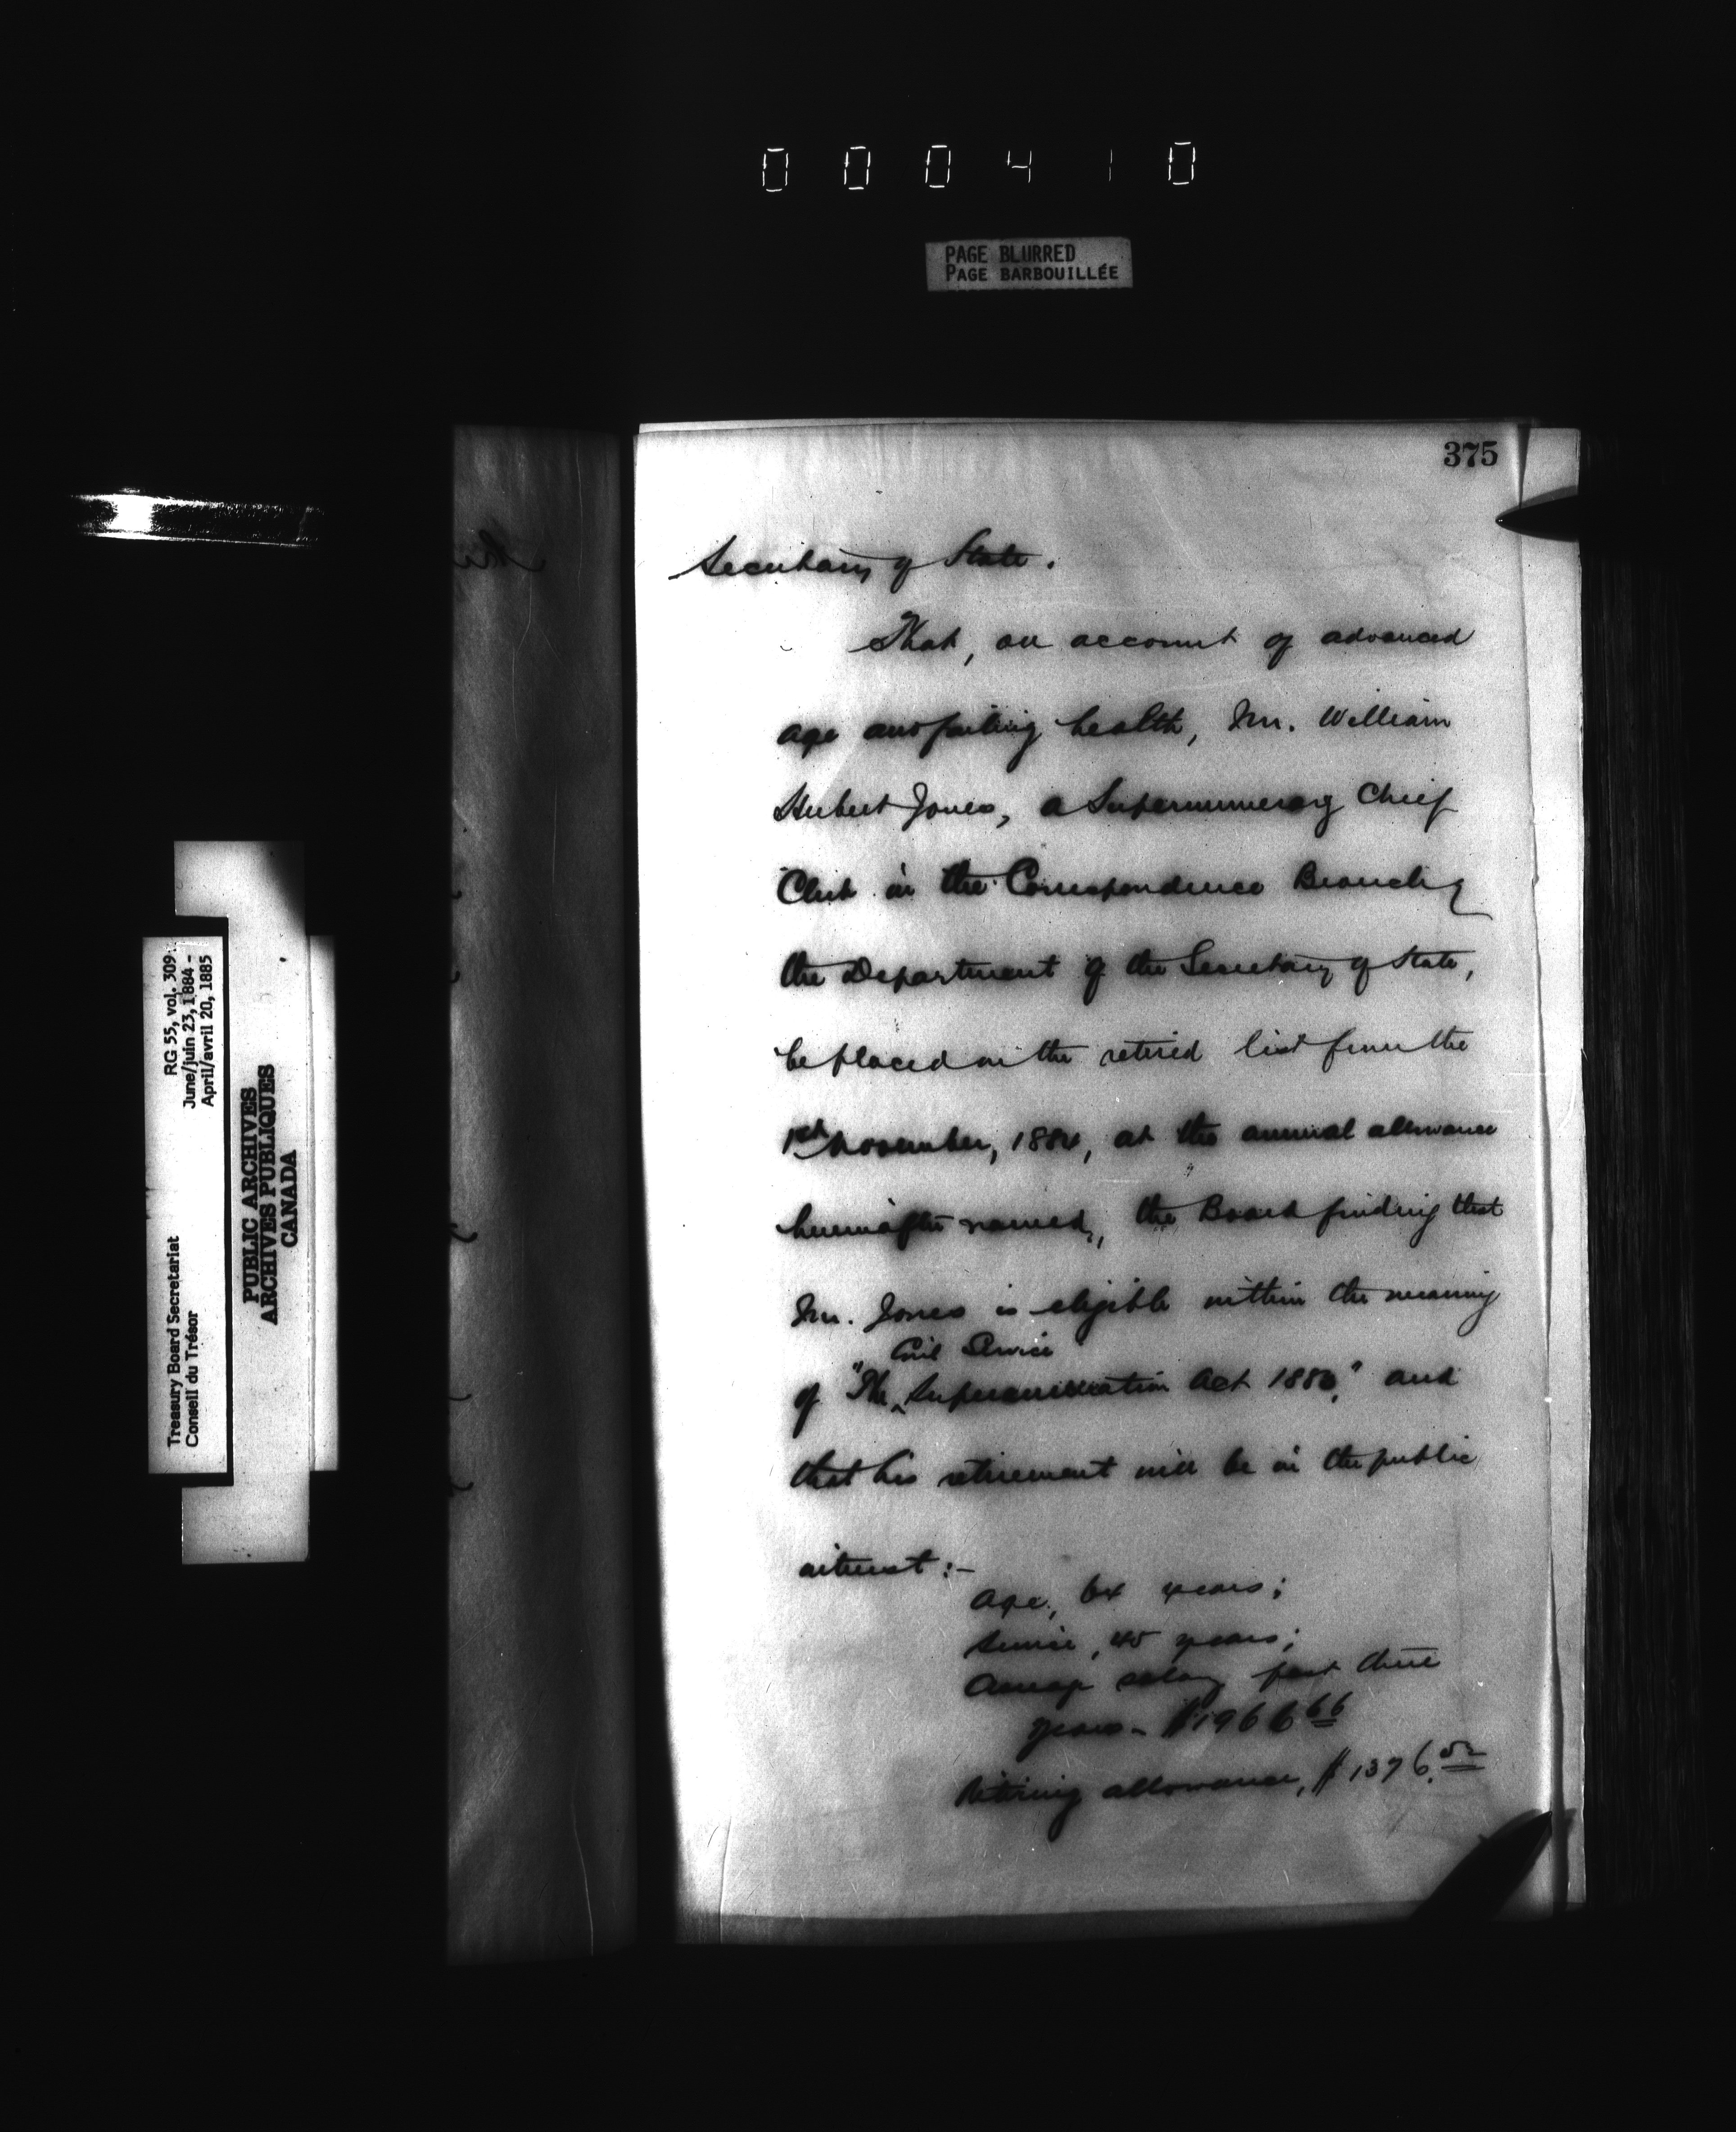 000410
PAGE BLURRED
PAGE BARBOUILLÉE
375
Secretary of State.
That, on account of advanced
age and failing health, Mr. William
Hubert Jones, a Supernumerary Chief
Clerk in the Correspondence Branch of
the Department of the Secretary of State,
be placed on the retired list from the
1st November, 1884, at the annual allowance
hereinafter named, the Board finding that
Mr. Jones is eligible within the meaning
Civil Service
of "The ^ Superannuation Act 1883," and
that his retirement will be in the public
interest:-
Age, 64 years;
Service, 40 years;
Average salary past three
years - $1966 66
Retiring allowance, $1376.
RG 55, vol. 309
June/juin 23, 1884 -
April/avril 20, 1885
Treasury Board Secretariat
Conseil du Trésor
PUBLIC ARCHIVES
ARCHIVES PUBLIQUES
CANADA